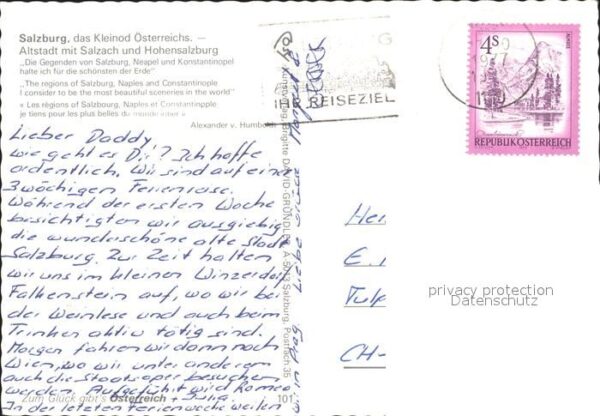 Salzburg, das Kleinod Österreichs. —
Altstadt mit Salzach und Hohensalzburg
„Die Gegenden von Salzburg, Neapel und Konstantinopel
halte ich für die schönsten der Erde"
„The regions of Salzburg, Naples and Constantinople
I consider to be the most beautiful sceneries in the world"
« Les régions de Salzbourg, Naples et Constantinople
je tiens pour les plus belles du monde entier »
Alexander v. Humboldt
Lieber Daddy
wie geht es Dir? Ich hoffe
ordentlich. Wir sind auf einer
3 wöchigen Ferienreise.
Während der ersten Woche
besichtigten wir ausgiebig
die wunderschöne alte Stadt
Salzburg. Zur Zeit halten
wir uns im kleinen Winzerdorf
Falkenstein auf, wo wir bei
der Weinlese und auch beim
Trinken aktiv tätig sind.
Morgen fahren wir dann noch
Wien, wo wir unter anderem
auch die Staatsoper besuchen
werden. Aufgeführt wird Romeo
+ Julia.
In der letzten Ferienwoche weilen
wir
Liebe Grüsse
Zum Glück gibt's Österreich
101
Brigitte DAVID-GRÜNDLER, A-5013 Salzburg, Postfach 35
IHR REISEZIEL
4 S
1977
REPUBLIK ÖSTERREICH
Her
E.
Tulp
CH-
privacy protection
Datenschutz